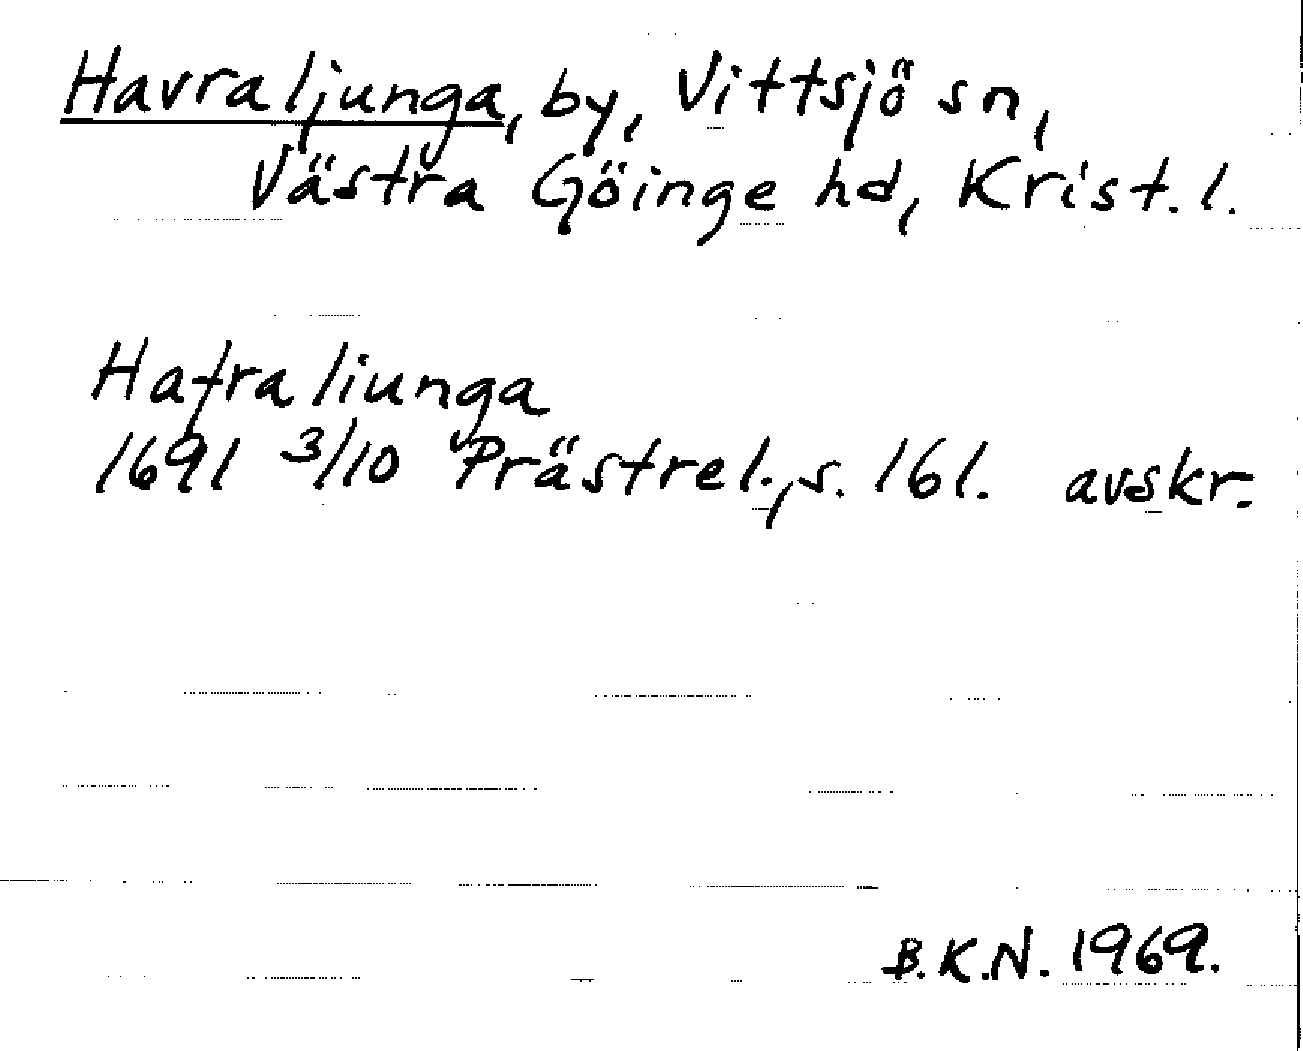 Havraljunga, by, Vittsjö sn,
Västra Göinge hd, Krist. l.
Hafraliunga
1691 3/10 Prästrel., s. 161. avskr.
B.K.N. 1969.